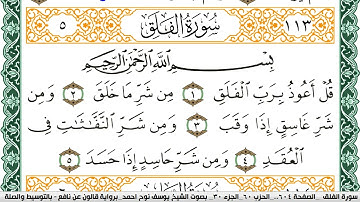 ٥ سُورَةُ الْفَلَقِ ١١٣
بِسْمِ اللَّهِ الرَّحْمَٰنِ الرَّحِيمِ
قُلْ أَعُوذُ بِرَبِّ الْفَلَقِ ١ مِن شَرِّ مَا خَلَقَ ٢ وَمِن
شَرِّ غَاسِقٍ إِذَا وَقَبَ ٣ وَمِن شَرِّ النَّفَّٰثَٰتِ فِي
الْعُقَدِ ٤ وَمِن شَرِّ حَاسِدٍ إِذَا حَسَدَ ٥
سورة الفلق .. الصفحة ٦٠٤ .. الحزب ٦٠ .. الجزء ٣٠ .. بصوت الشيخ يوسف نوح احمد .برواية قالون عن نافع - بالتوسيط والصلة